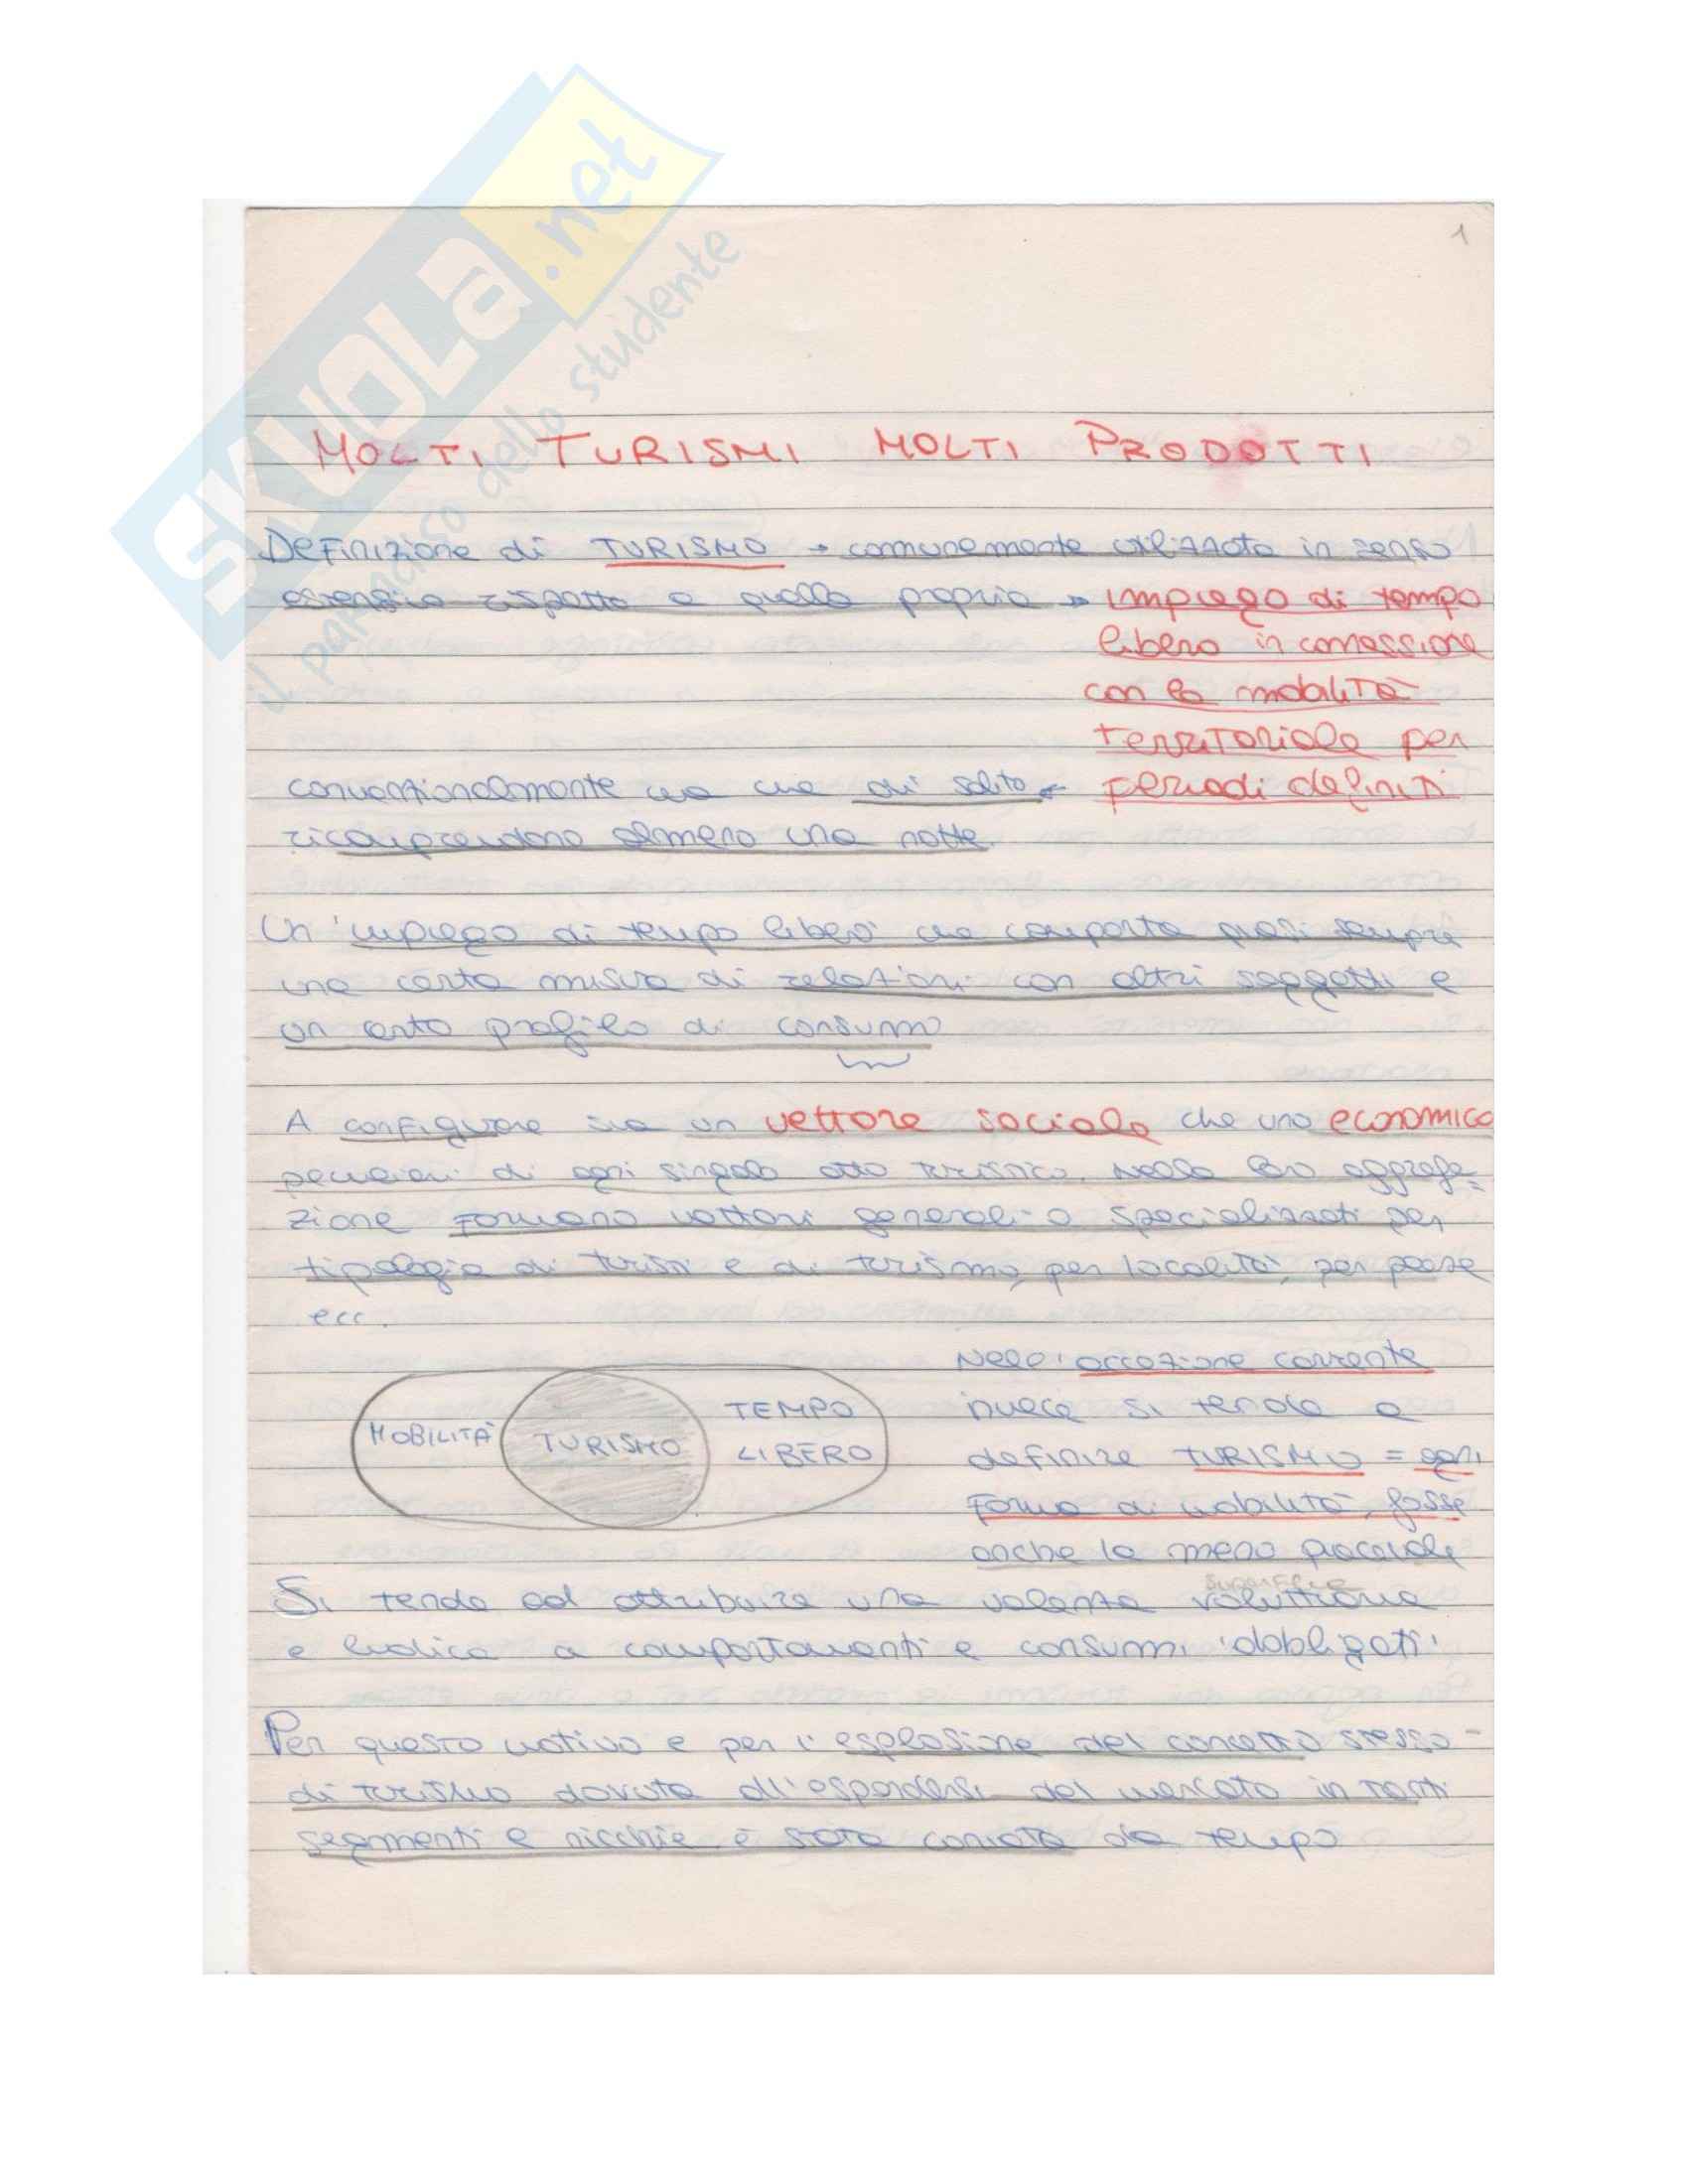 SKUOLA.net
il paradiso dello studente
1
MOLTI TURISMI MOLTI PRODOTTI
Definizione di TURISMO → comunemente utilizzata in senso
estensivo rispetto a quello proprio → impiego di tempo
libero in connessione
con la mobilità
territoriale per
periodi definiti
convenzionalmente ma che di solito ←
ricomprendono almeno una notte.
Un 'impiego di tempo libero' che comporta quasi sempre
una certa misura di relazioni con altri soggetti e
un certo profilo di consumo
A configurare sia un vettore sociale che uno economico
peculiari di ogni singolo atto turistico. Nella loro aggrega=
zione formano vettori generali o specializzati per
tipologia di turisti e di turismo, per località, per paese
ecc.
Nell'accezione corrente
invece si tende a
definire TURISMO = ogni
forma di mobilità, fosse
anche la meno piacevole
MOBILITÀ TURISMO TEMPO LIBERO
Si tende ad attribuire una valenza voluttuaria
e ludica a comportamenti e consumi 'obbligati'
Per questo motivo e per l'esplosione del concetto stesso
di turismo dovuta all'espandersi del mercato in tanti
segmenti e nicchie è stata coniata da tempo